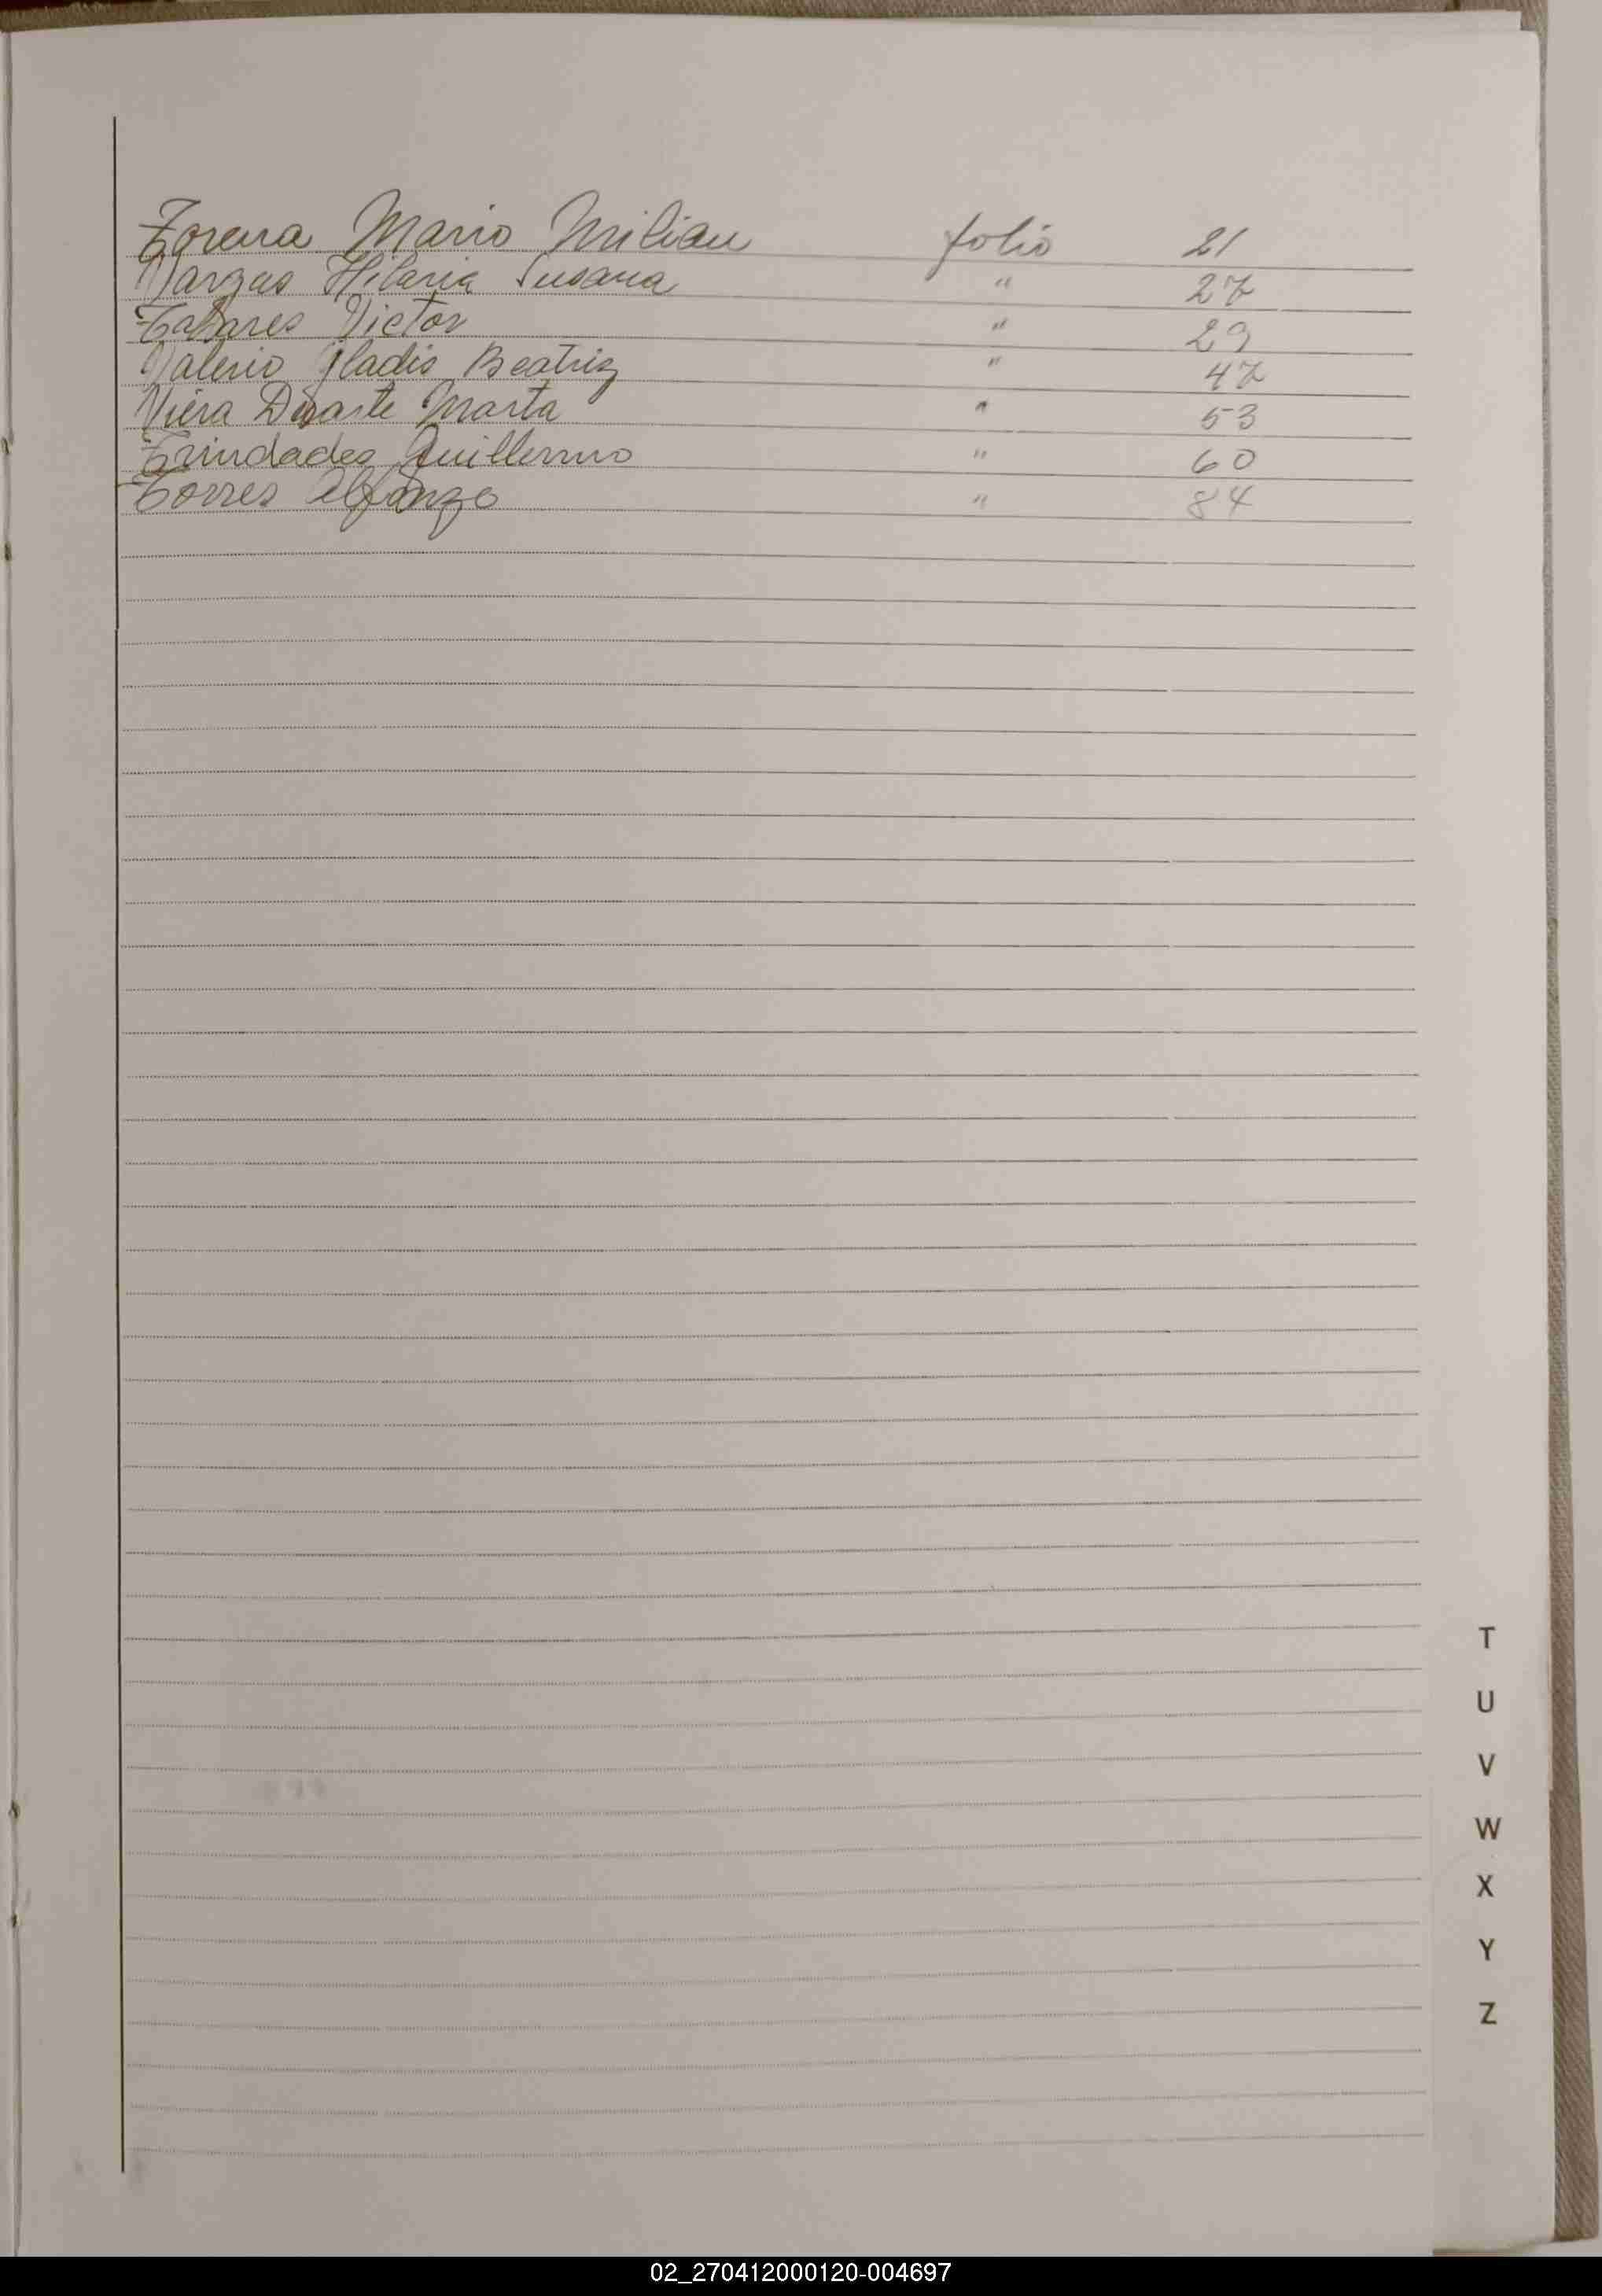 Torena Mario Milian folio 21
Vargas Hilaria Susana " 27
Tabares Victor " 29
Valerio Gladis Beatriz " 47
Viera Duarte Marta " 53
Trindades Guillermo " 60
Torres Alfonzo " 84
T
U
V
W
X
Y
Z
02_270412000120-004697